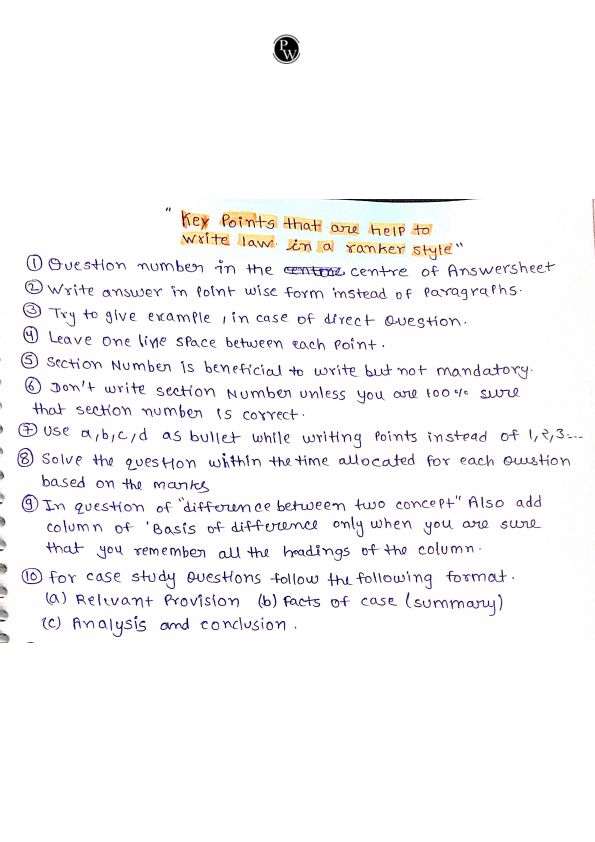 PW
" Key Points that are help to
write law. in a ranker style"
① Question number in the centre of Answersheet
② Write answer in Point wise form instead of Paragraphs.
③ Try to give example, in case of direct Question.
④ Leave one line space between each Point.
⑤ Section Number is beneficial to write but not mandatory.
⑥ Don't write section Number unless you are 100% sure
that section number is correct.
⑦ Use a,b,c,d as bullet while writing Points instead of 1,2,3....
⑧ Solve the question whithin the time allocated for each Question
based on the marks
⑨ In question of "difference between two concept" Also add
column of 'Basis of difference only when you are sure
that you remember all the headings of the column.
⑩ For case study Questions follow the following format.
(a) Relevant Provision (b) Facts of case (summary)
(c) Analysis and conclusion.